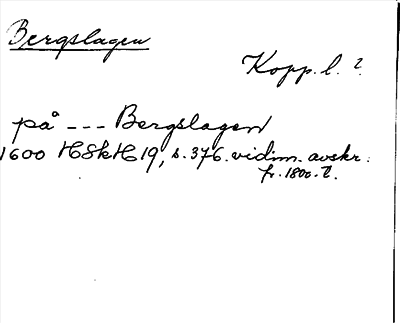 Bergslagen
Kopp. l. ?
på --- Bergslagen
1600 HSkH 19, s. 376. vidim. avskr.
fr. 1800-t.